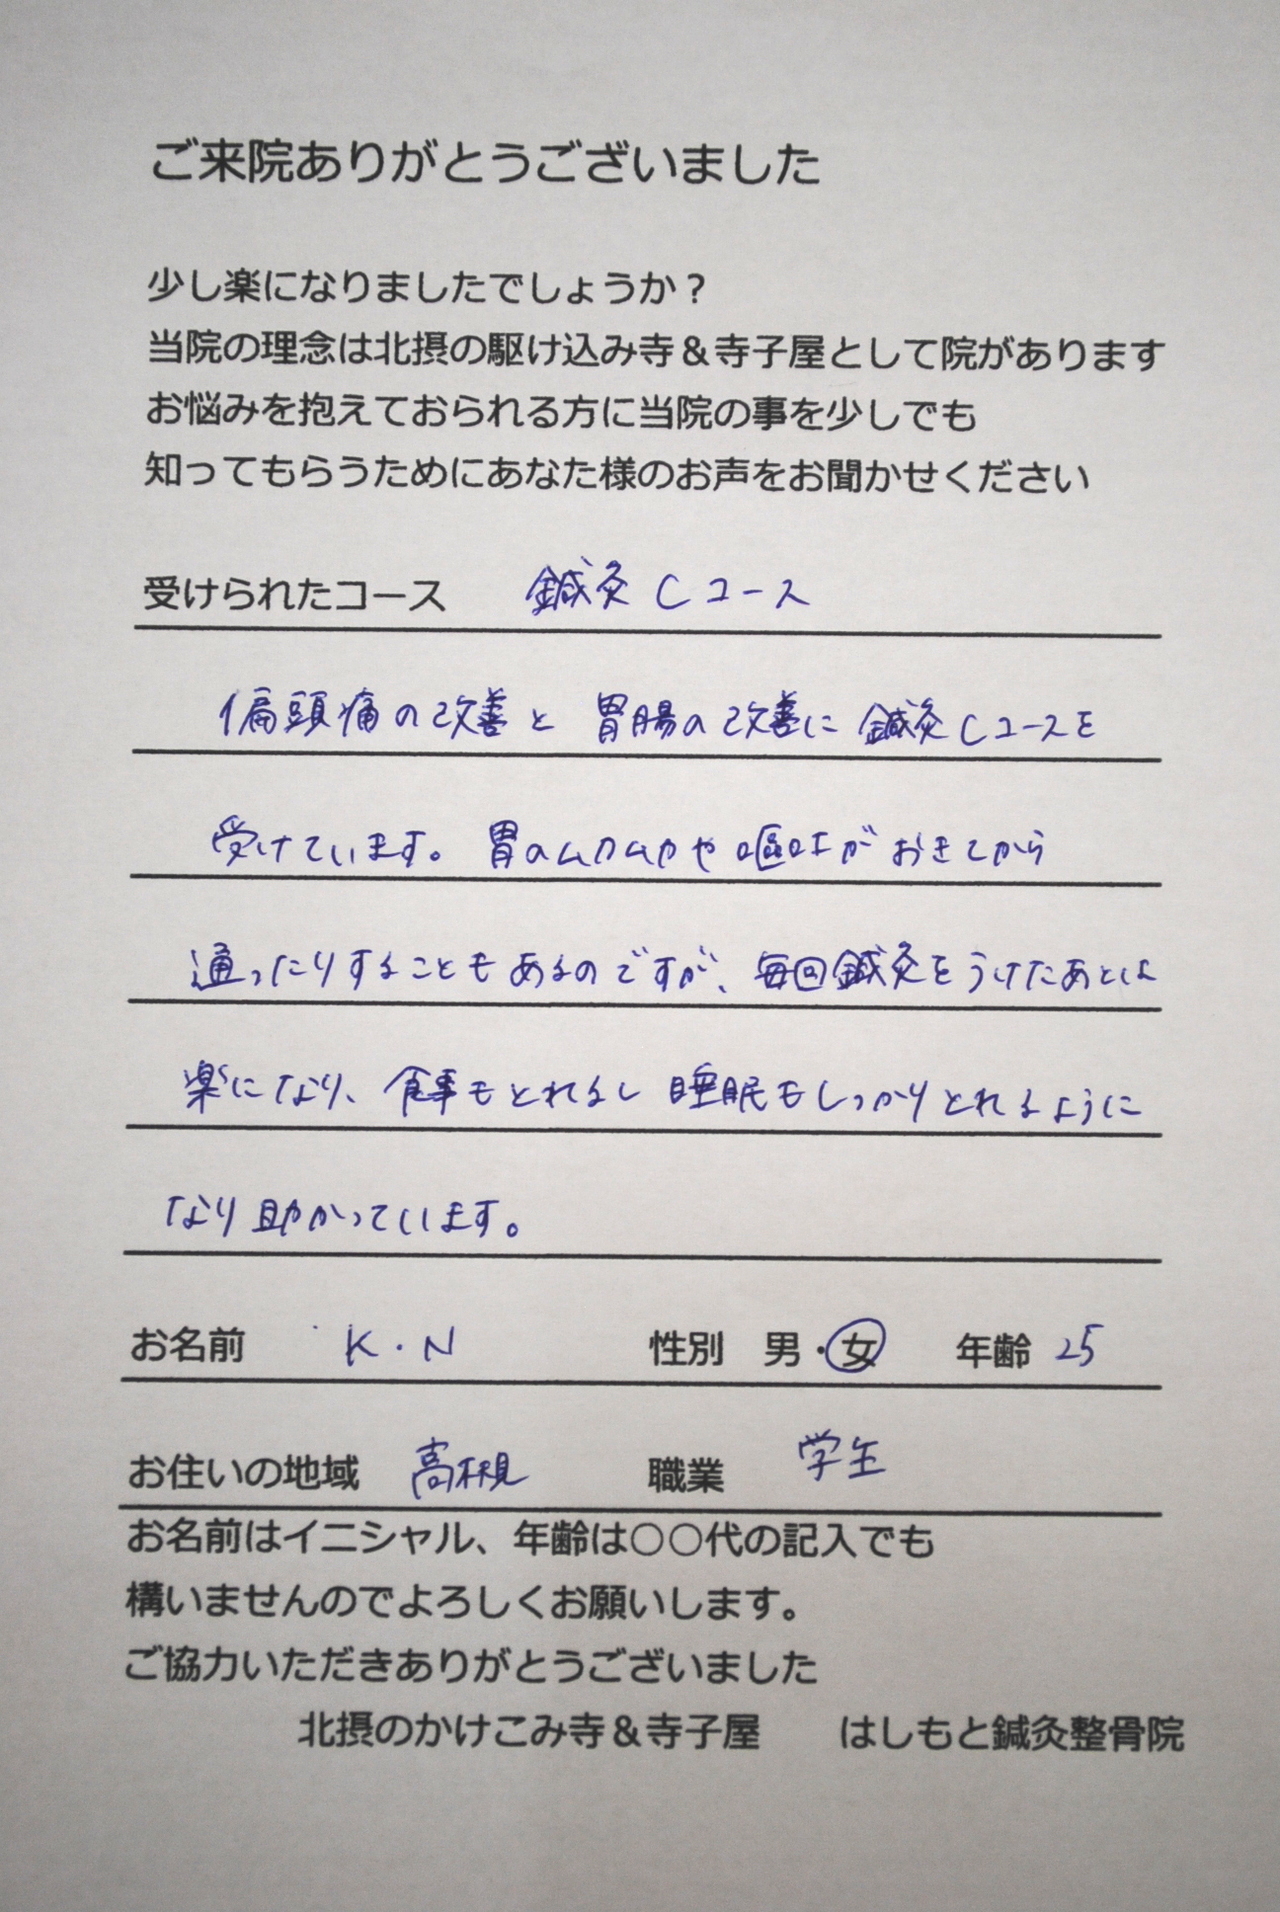 ご来院ありがとうございました
少し楽になりましたでしょうか？
当院の理念は北摂の駆け込み寺＆寺子屋として院があります
お悩みを抱えておられる方に当院の事を少しでも
知ってもらうためにあなた様のお声をお聞かせください
受けられたコース 鍼灸Cコース
偏頭痛の改善と胃腸の改善に鍼灸Cコースを
受けています。胃のムカムカや嘔吐がおきてから
通ったりすることもあるのですが、毎回鍼灸をうけたあとは
楽になり、食事もとれるし睡眠もしっかりとれるように
なり助かっています。
お名前 K・N 性別 男・女 年齢 25
お住いの地域 高槻 職業 学生
お名前はイニシャル、年齢は〇〇代の記入でも
構いませんのでよろしくお願いします。
ご協力いただきありがとうございました
北摂のかけこみ寺＆寺子屋 はしもと鍼灸整骨院